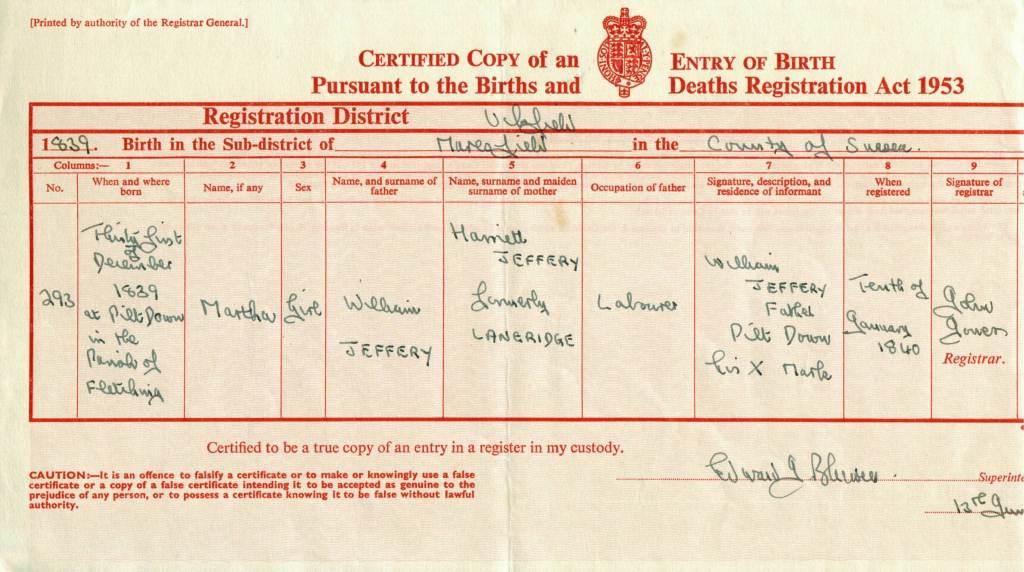 [Printed by authority of the Registrar General.]
CERTIFIED COPY of an ENTRY OF BIRTH
Pursuant to the Births and Deaths Registration Act 1953
Registration District Uckfield
1839. Birth in the Sub-district of Maresfield in the County of Sussex.
Columns:— 1 2 3 4 5 6 7 8 9
No. When and where born Name, if any Sex Name, and surname of father Name, surname and maiden surname of mother Occupation of father Signature, description, and residence of informant When registered Signature of registrar
293
Thirty first
of
December
1839
at Pilt Down
in the
Parish of
Fletching
Martha
Girl
William
JEFFERY
Harriett
JEFFERY
formerly
LANGRIDGE
Labourer
William
JEFFERY
Father
Pilt Down
his X Mark
Tenth of
January
1840
John
Gowers
Registrar.
Certified to be a true copy of an entry in a register in my custody.
CAUTION:—It is an offence to falsify a certificate or to make or knowingly use a false
certificate or a copy of a false certificate intending it to be accepted as genuine to the
prejudice of any person, or to possess a certificate knowing it to be false without lawful
authority.
Edward
Superinte